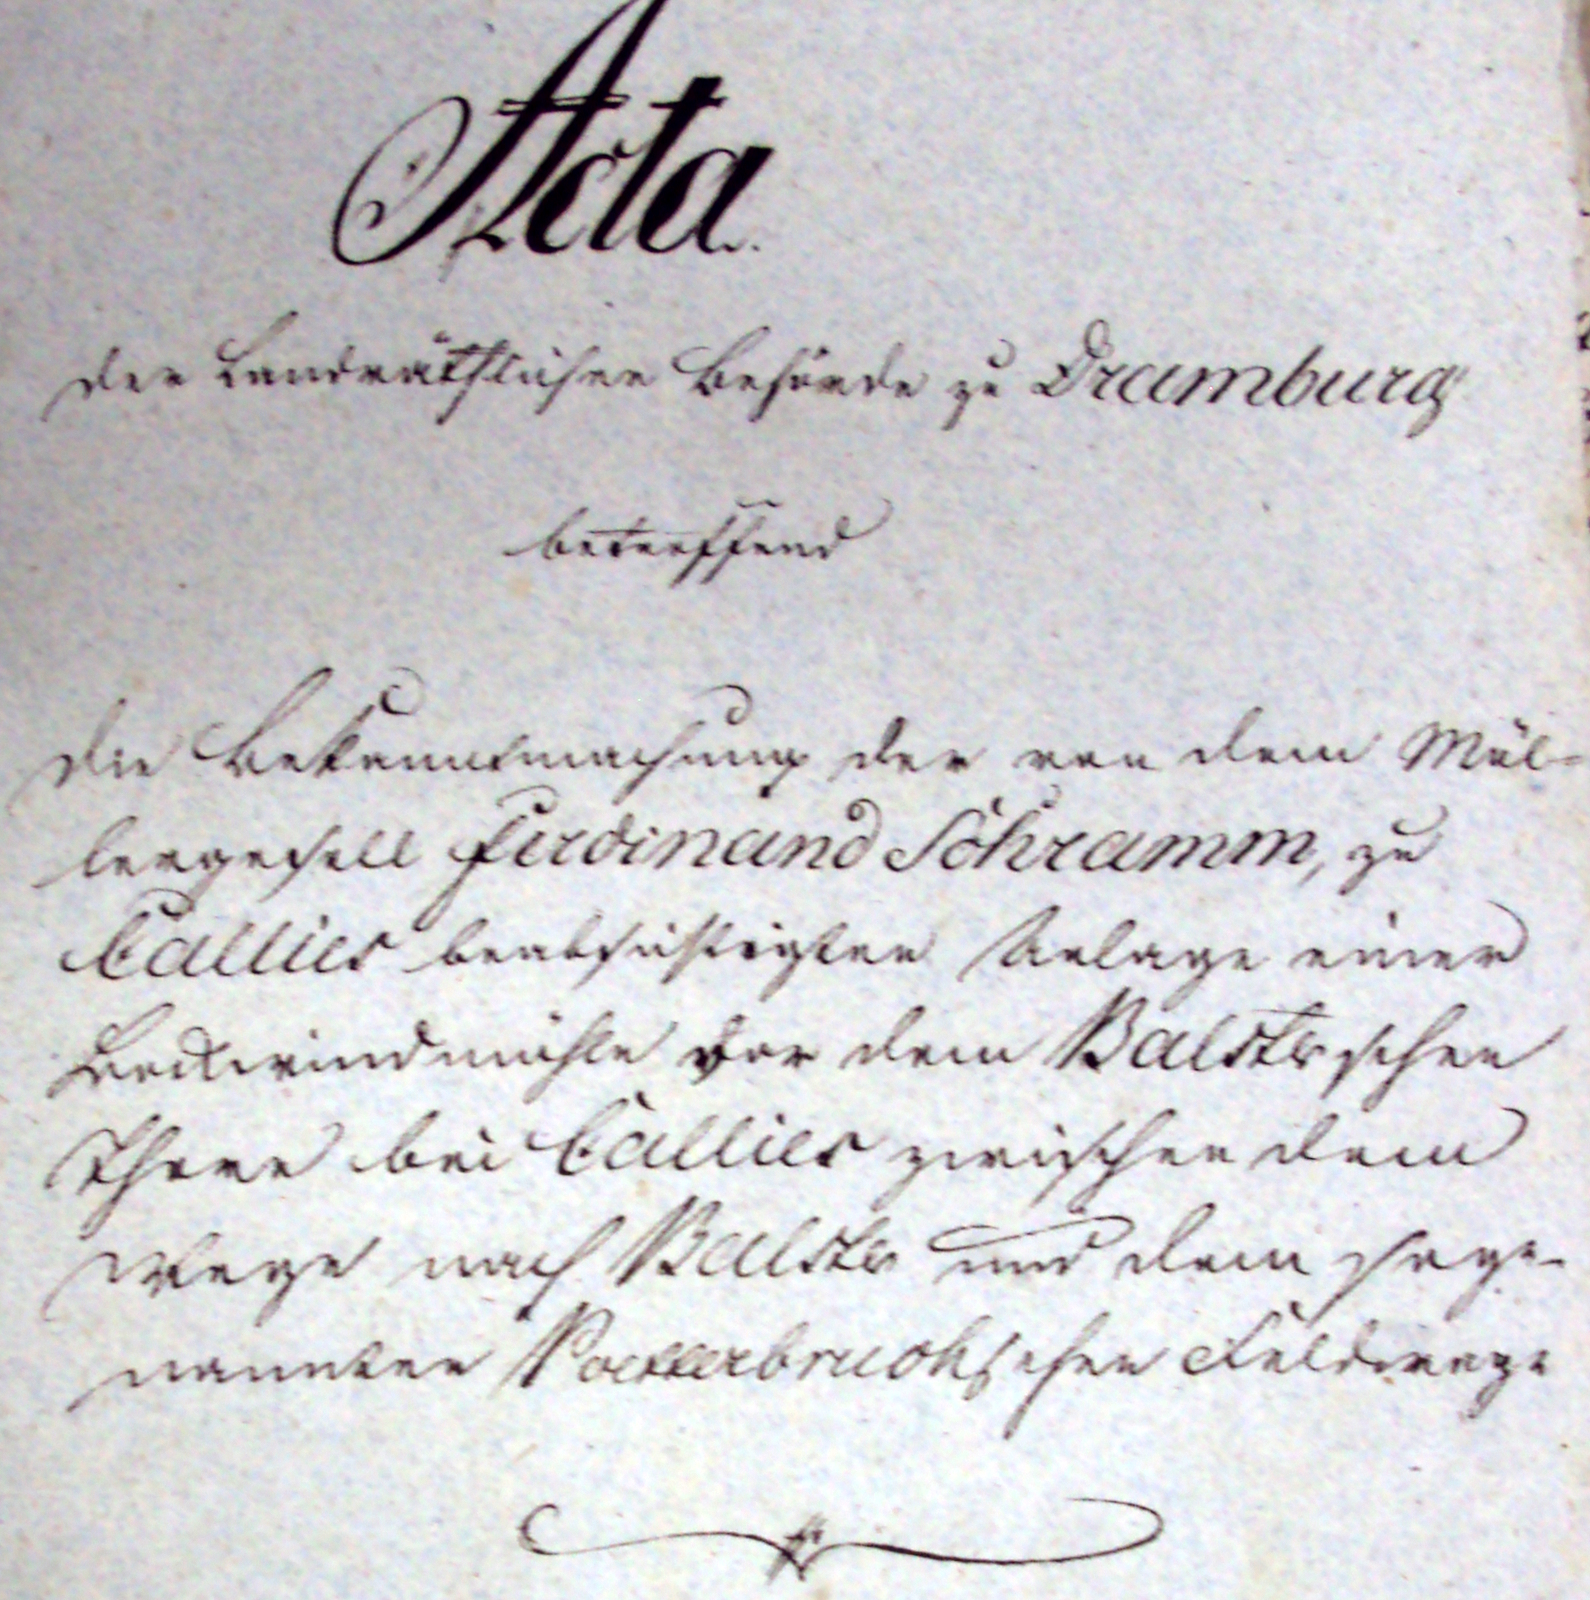 Acta
der Landräthlichen Behörde zu Dramburg
betreffend
die Bekanntmachung der von dem Mül-
lergesell Ferdinand Schramm, zu
Callies beabsichtigten Anlage einer
Bockwindmühle vor dem Balsterschen
Thore bei Callies zwischen dem
Wege nach Balster und dem soge-
nannten Pötterbruchschen Feldwege